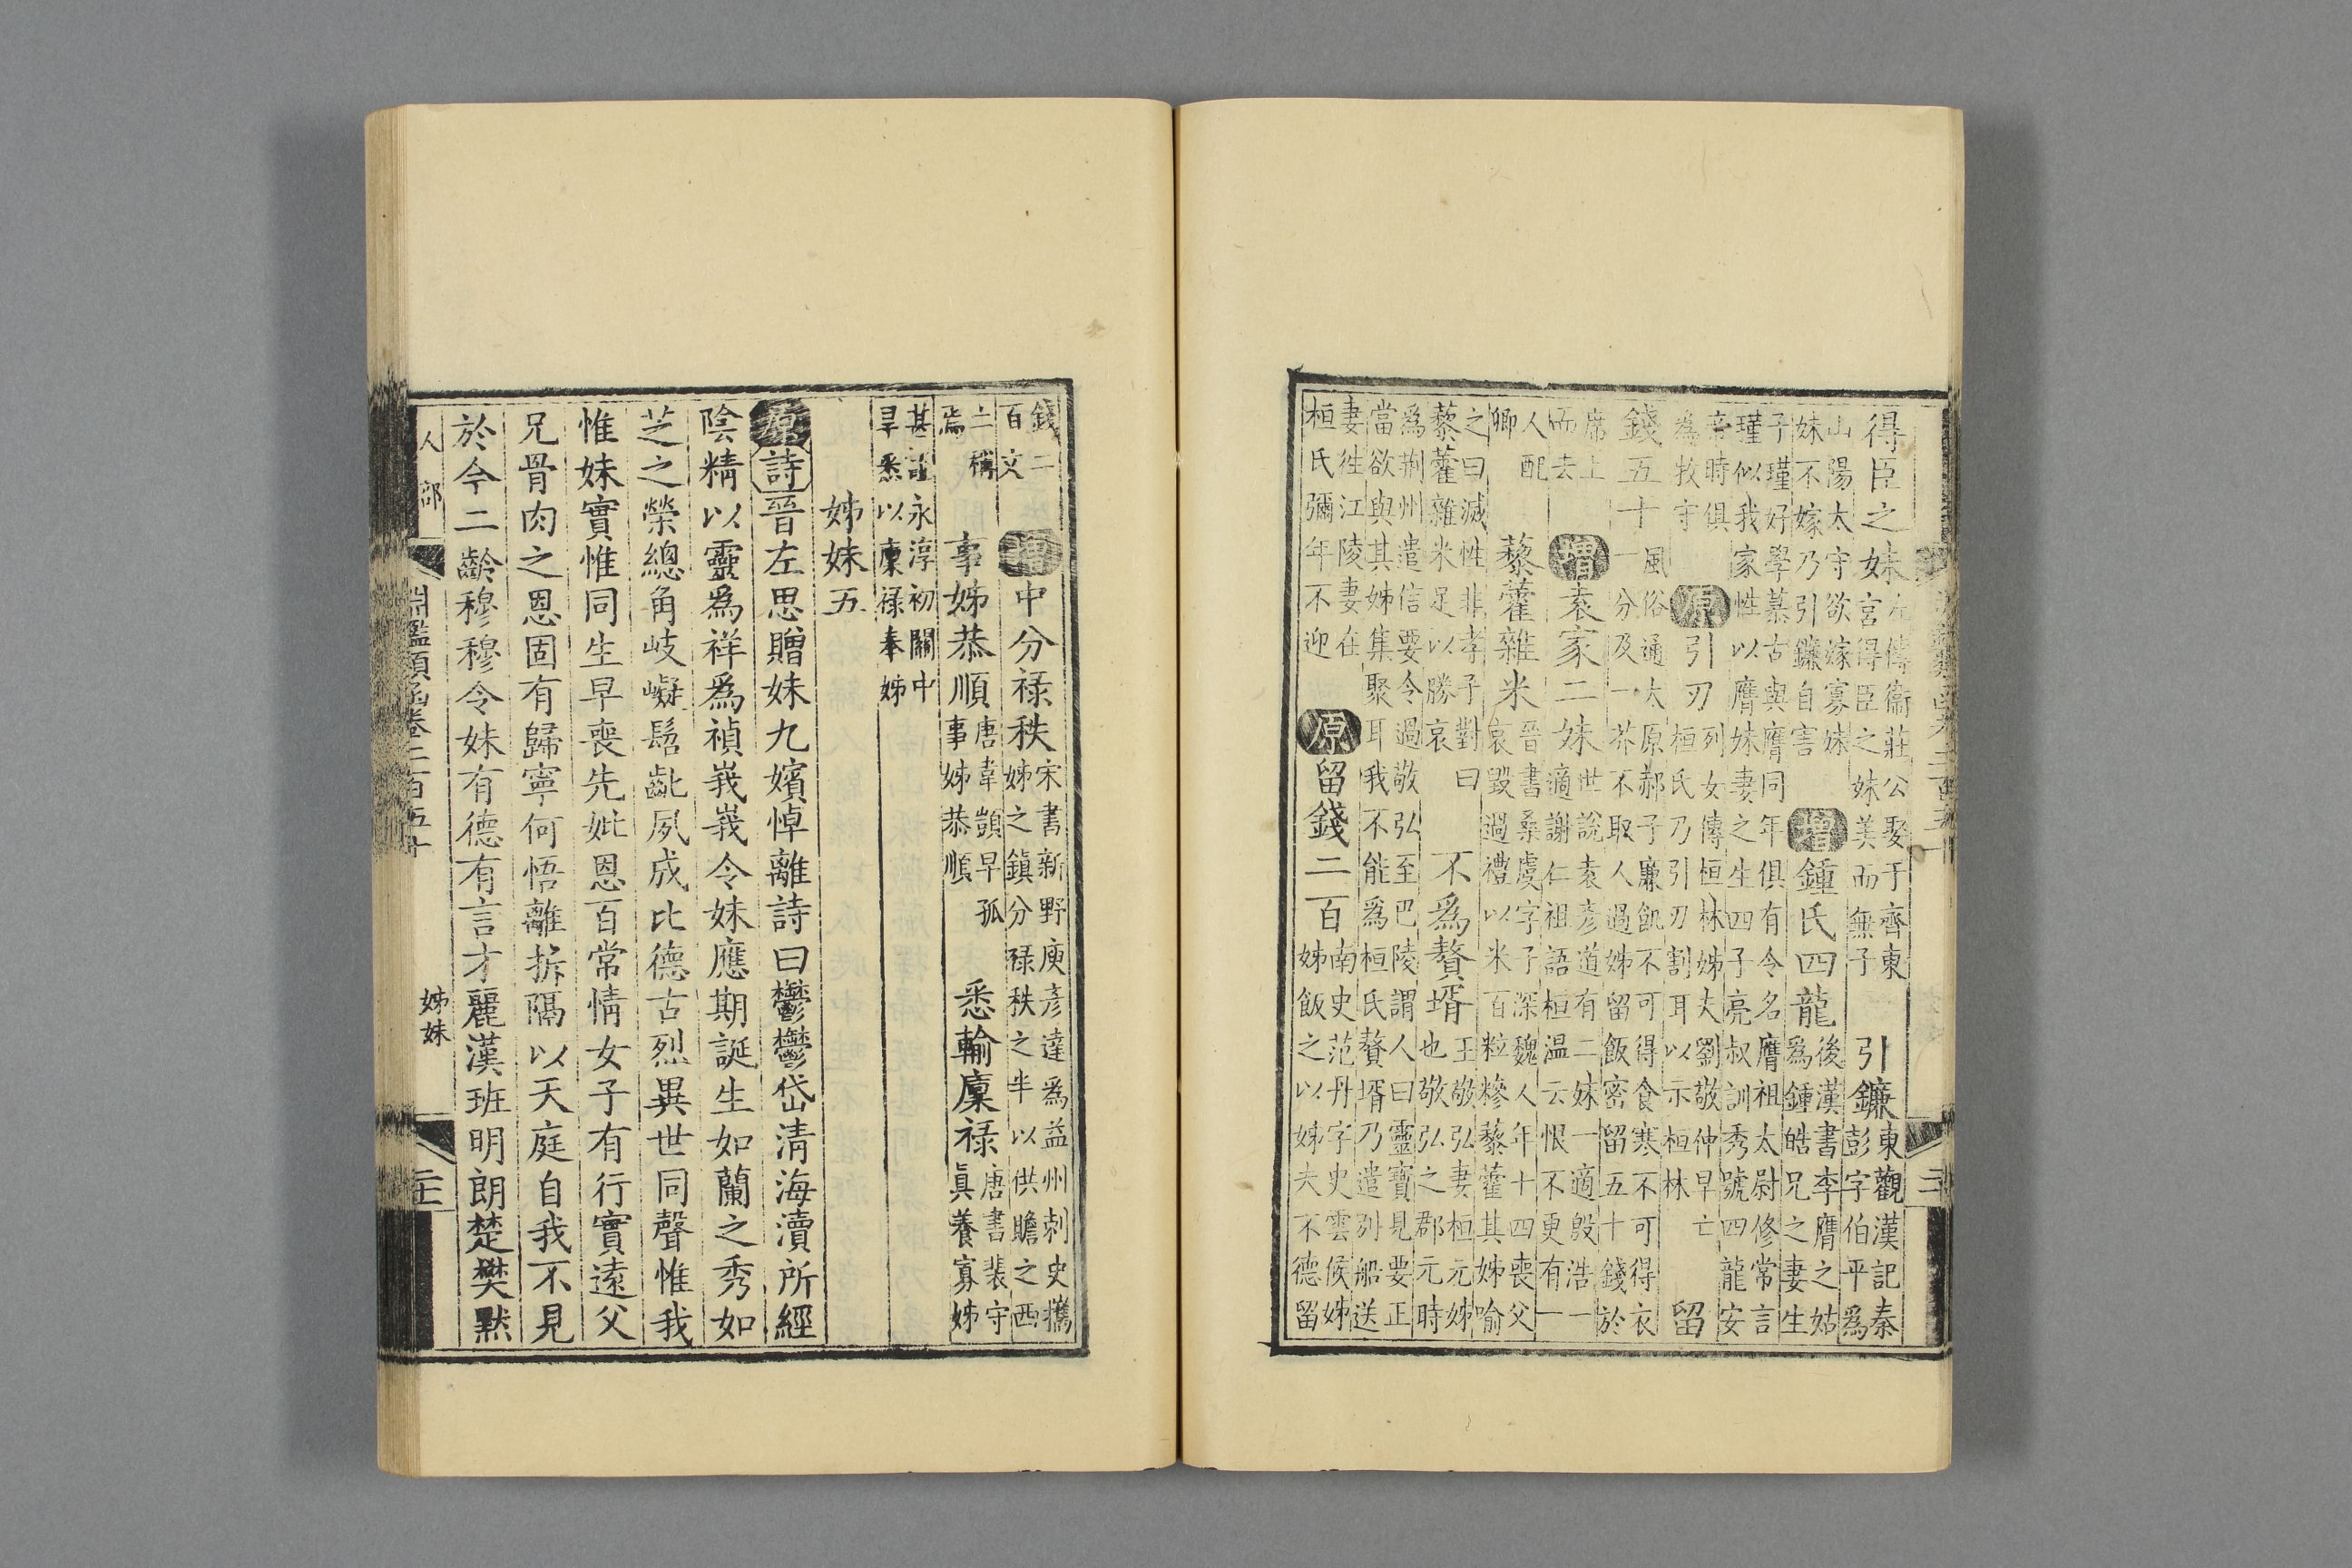 得臣之妹
左傳衛莊公娶于齊東
宮得臣之妹美而無子
引鐮
東觀漢記秦
彭字伯平爲
山陽太守欲嫁寡妹
妹不嫁乃引鐮自害
增鍾氏四龍
後漢書李膺之姑
爲鍾皓兄之妻生
子瑾好學慕古與膺同年俱有令名膺祖太尉修常言
瑾似我家性以膺妹妻之生四子亮叔訓秀號四龍安
帝時俱
爲牧守
原引刃
列女傳桓林姊夫劉敬仲早亡
桓氏乃引刃割耳以示桓林
留
錢五十
風俗通太原郝子廉飢不可得食寒不可得衣
一分及一芥不取人過姊留飯密留五十錢於
席上
而去
增袁家二妹
世說袁彥道有二妹一適殷浩一
適謝仁祖語桓温云恨不更有一
人配
卿
藜藿雜米
晉書桑虞字子深魏人年十四喪父
哀毀過禮以米百粒糝藜藿其姊喻
之曰滅性非孝子對曰
藜藿雜米足以勝哀
不爲贅壻
王敬弘妻桓元姊
也敬弘之郡元時
爲荆州遣信要令過敬弘至巴陵謂人曰靈寶見要正
當欲與其姊集聚耳我不能爲桓氏贅壻乃遣別船送
妻往江陵妻在
桓氏彌年不迎
原留錢二百
南史范丹字史雲候姊
姊飯之以姊夫不德留
錢二
百文
增中分祿秩
宋書新野庾彥達爲益州刺史攜
姊之鎮分祿秩之半以供贍之西
土稱
焉
事姊恭順
唐韋顗早孤
事姊恭順
悉輸廩祿
唐書裴守
眞養寡姊
甚謹永淳初關中
旱悉以廩祿奉姊
姊妹五
原詩晉左思贈妹九嬪悼離詩曰鬱鬱岱淸海瀆所經
陰精以靈爲祥爲禎峩峩令妹應期誕生如蘭之秀如
芝之榮總角岐嶷髫齔夙成比德古烈異世同聲惟我
惟妹實惟同生早喪先妣恩百常情女子有行實遠父
兄骨肉之恩固有歸寧何悟離拆隔以天庭自我不見
於今二齡穆穆令妹有德有言才麗漢班明朗楚樊默
人部
淵鑑類函卷二百五十
姊妹